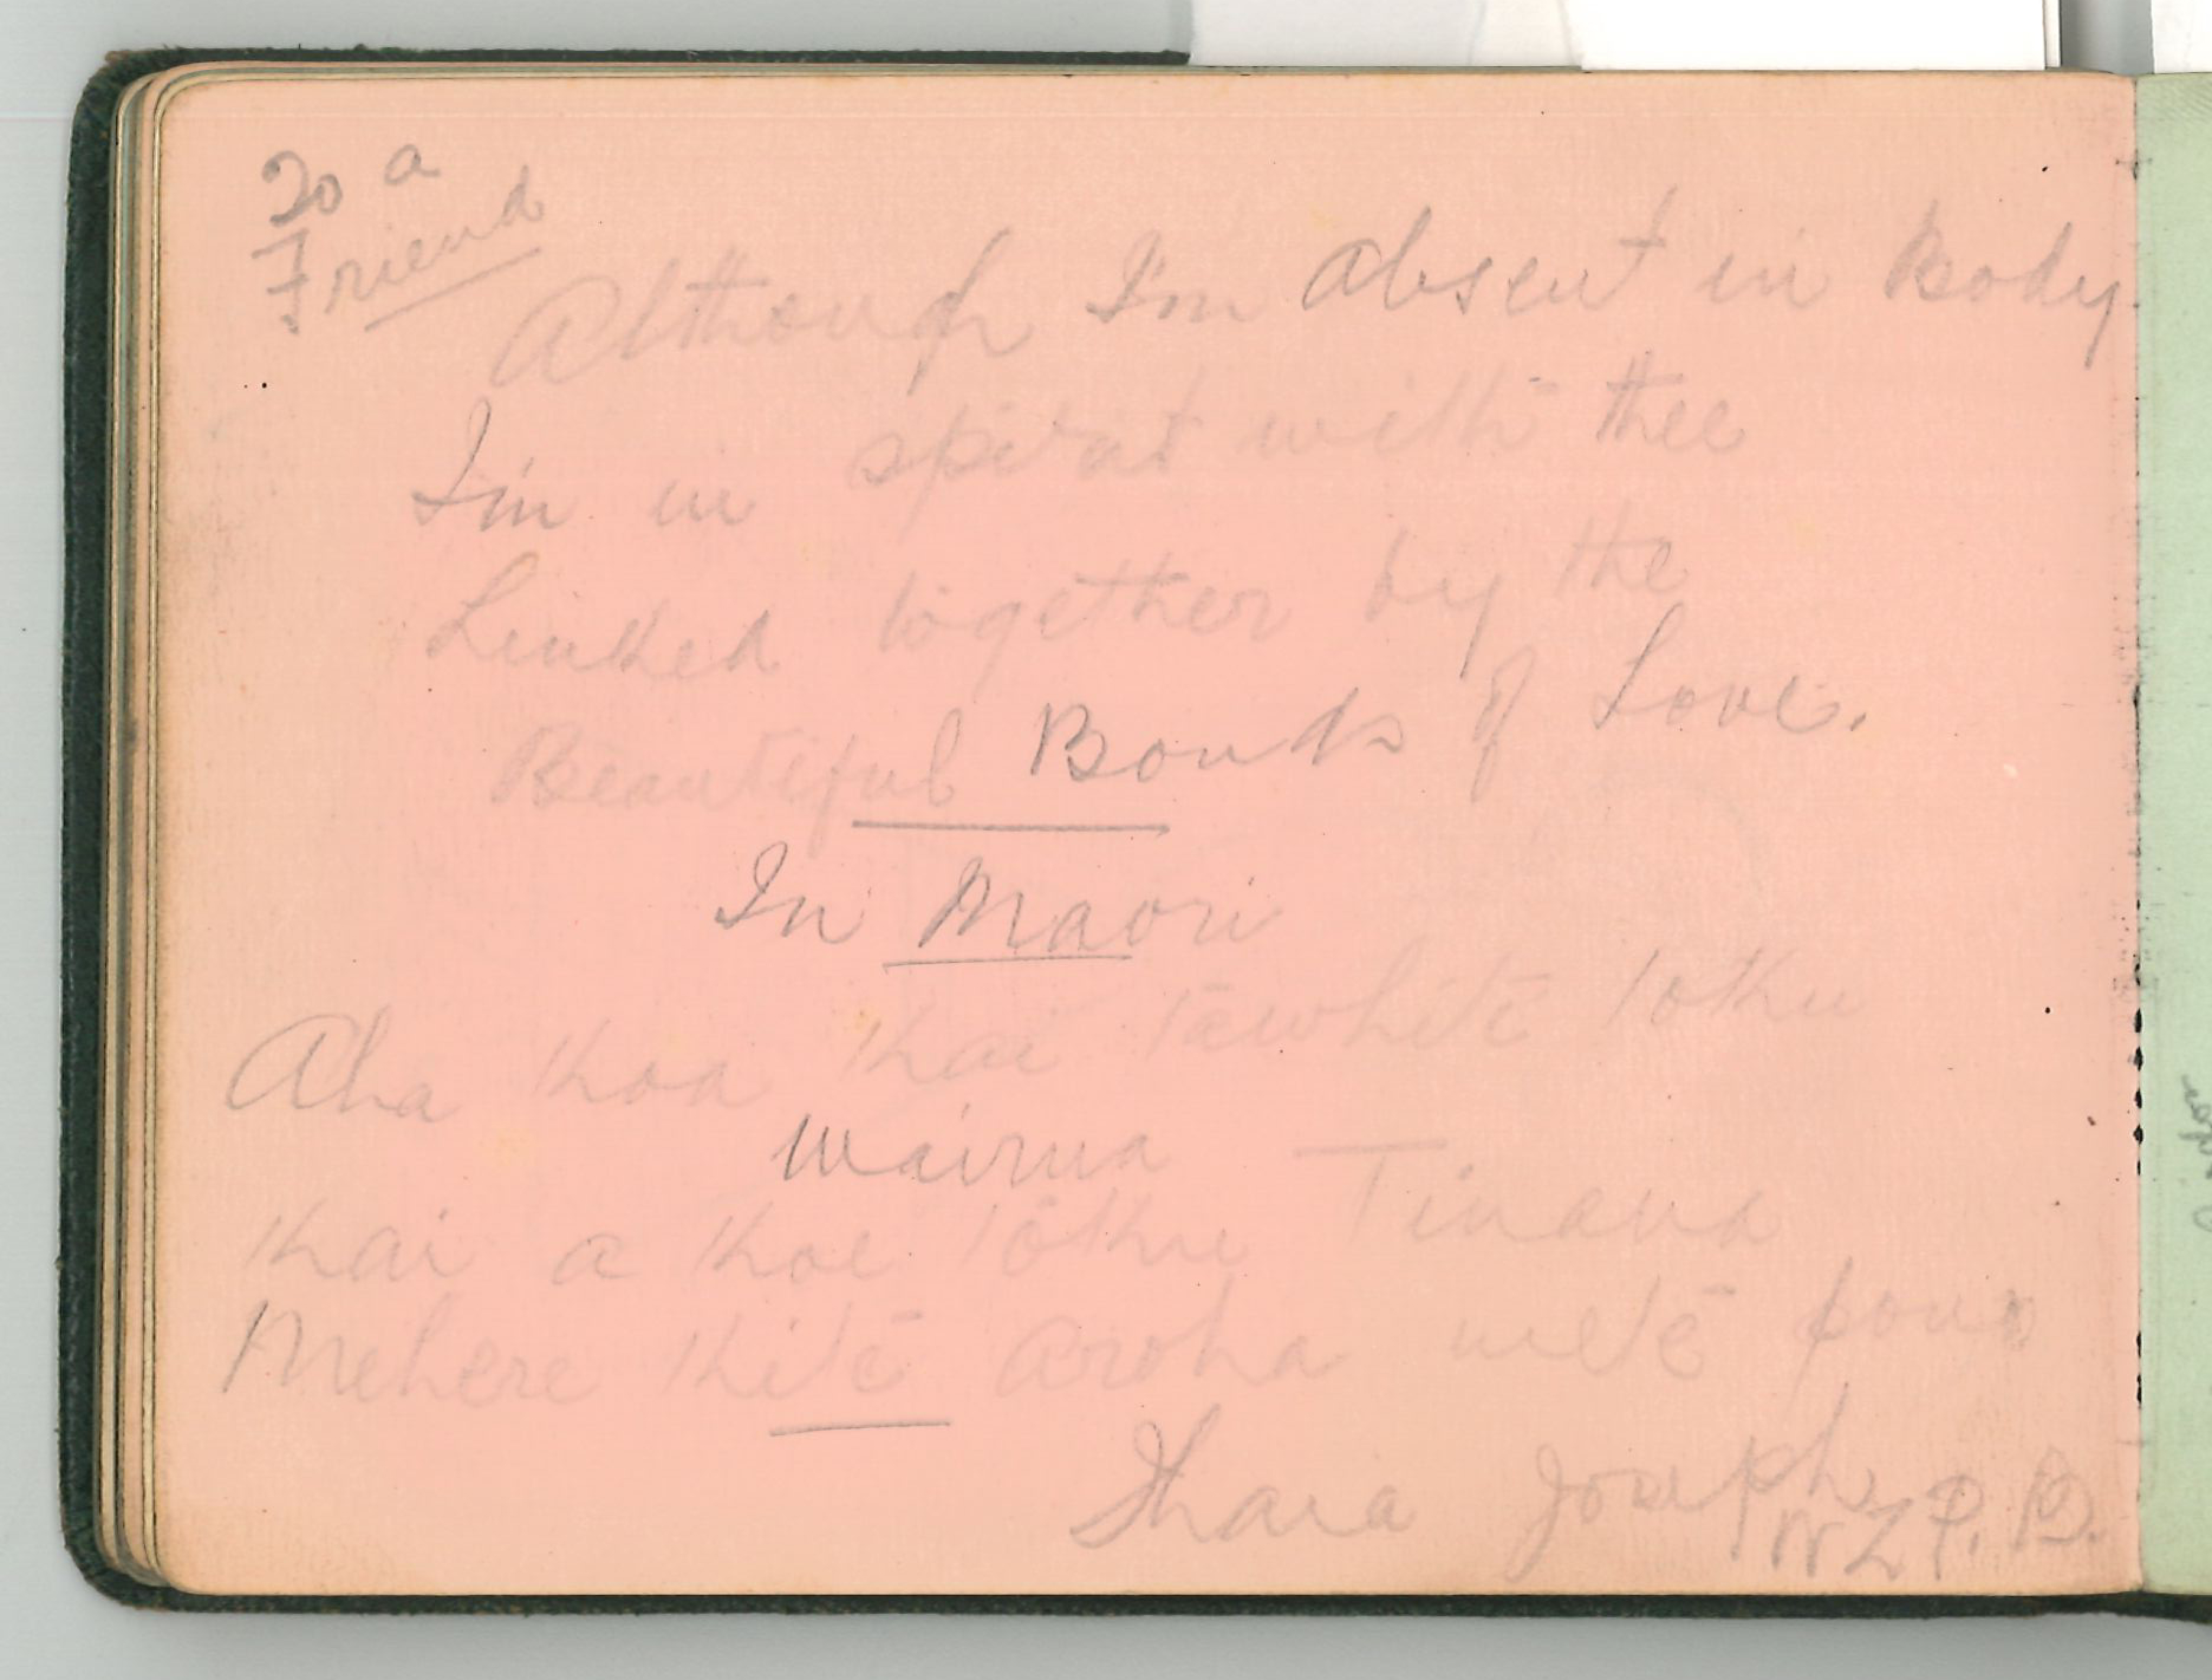 To a
Friend
Although I'm absent in Body
I'm in spirit with thee
Linked together by the
Beautiful Bonds of Love.
In Maori
Aha koa kai tawhite toku
Wairua
kai a koe toku Tinana
Mehere kite aroha mete pono
Joseph
NZ P. B.